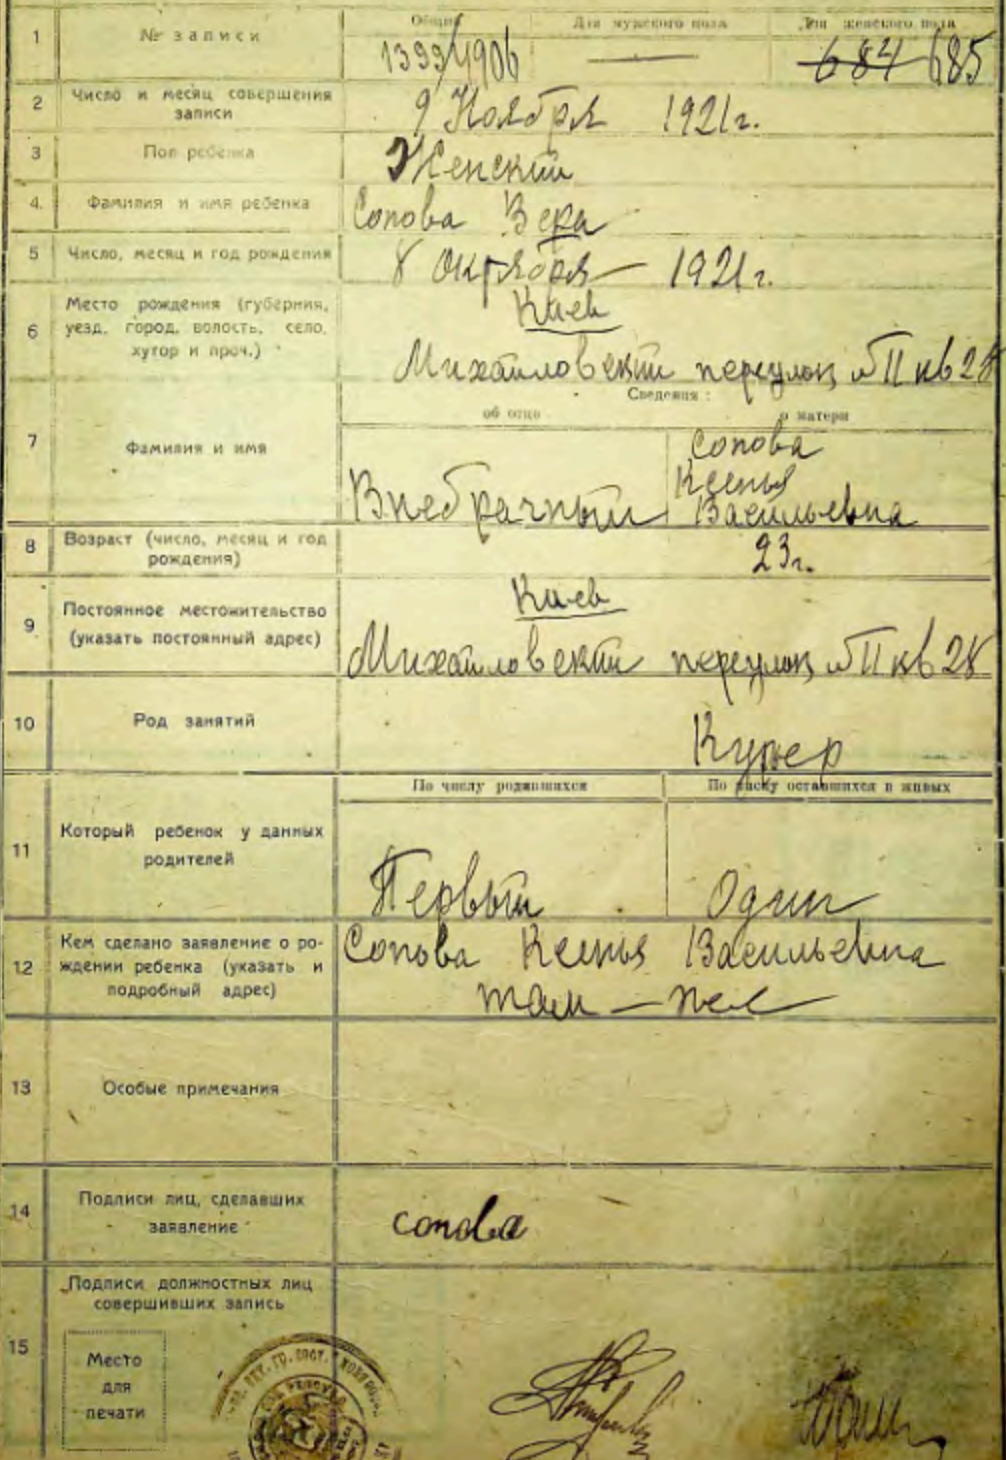 1 № записи
Общий Для мужского пола Для женского пола
1399/4906 — 684 685
2 Число и месяц совершения
записи
9 Ноября 1921г.
3 Пол ребенка Женский
4. Фамилия и имя ребенка Сопова Вера
5 Число, месяц и год рождения 8 Октября — 1921г.
6 Место рождения (губерния,
уезд, город, волость, село,
хутор и проч.)
Киев
Михайловский переулок № 11 кв 28
Сведения:
об отце о матери
7 Фамилия и имя
Внебрачный
Сопова
Ксенья
Васильевна
8 Возраст (число, месяц и год
рождения)
23г.
9 Постоянное местожительство
(указать постоянный адрес)
Киев
Михайловский переулок № 11 кв 28
10 Род занятий Курьер
По числу родившихся По числу оставшихся в живых
11 Который ребенок у данных
родителей
Первый Один
12 Кем сделано заявление о ро-
ждении ребенка (указать и
подробный адрес)
Сопова Ксенья Васильевна
там — же
13 Особые примечания
14 Подписи лиц, сделавших
заявление
сопова
15 Подписи должностных лиц
совершивших запись
Место
для
печати